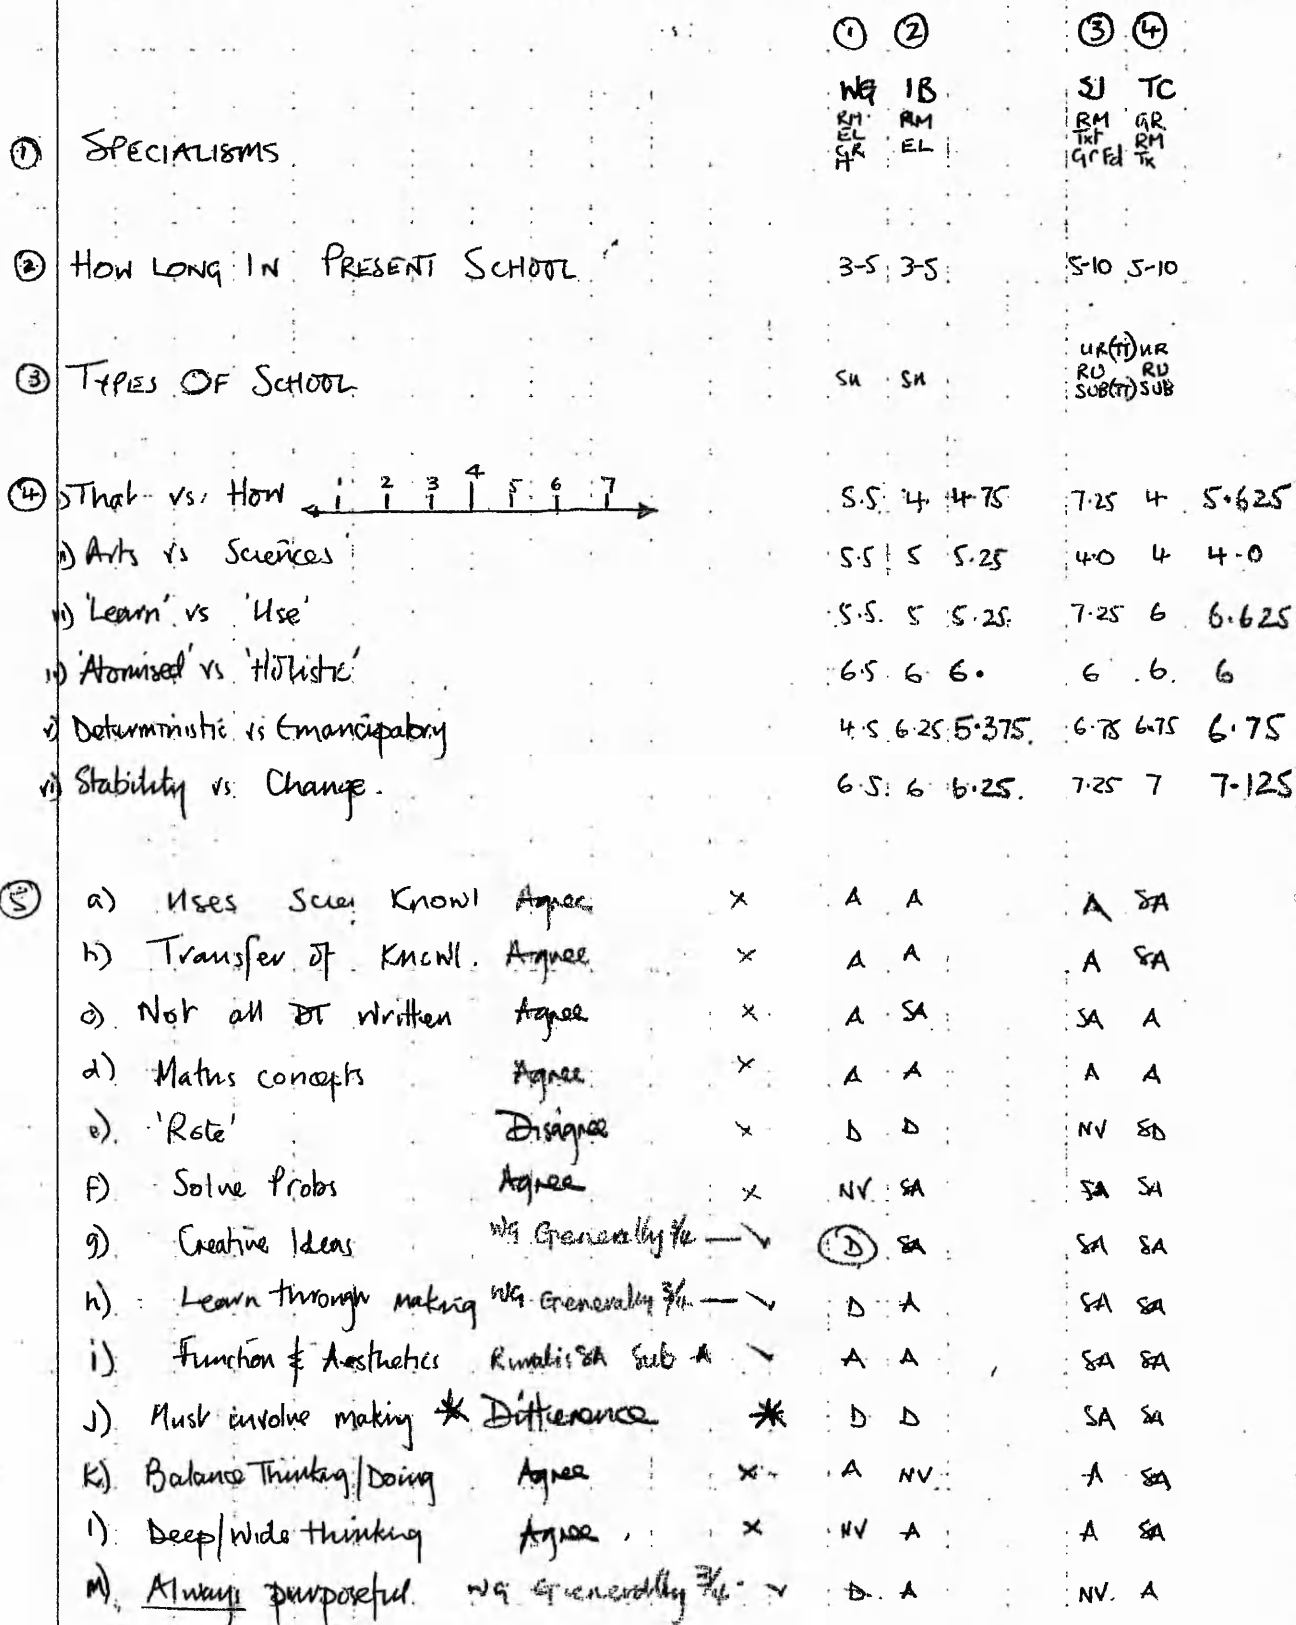 ① ② ③ ④
WG IB SJ TC
RM RM RM GR
EL Txt RM
① SPECIALISMS GR EL Gr Fd Tx
H
② HOW LONG IN PRESENT SCHOOL 3-5 3-5 5-10 5-10
UR(TT) UR
RU RU
③ TYPES OF SCHOOL SU SU SUB(TT) SUB
④ i) That vs. How 1 2 3 4 5 6 7 5.5 4 4.75 7.25 4 5.625
ii) Arts vs Sciences 5.5 5 5.25 4.0 4 4.0
iii) 'Learn' vs 'Use' 5.5 5 5.25 7.25 6 6.625
iv) 'Atomised' vs 'Holistic' 6.5 6 6. 6 6 6
v) Deterministic vs Emancipatory 4.5 6.25 5.375 6.75 6.75 6.75
vi) Stability vs Change. 6.5 6 6.25 7.25 7 7.125
⑤ a) Uses Scien Knowl Agree × A A A SA
b) Transfer of Knowl. Agree × A A A SA
c) Not all DT written Agree × A SA SA A
d) Maths concepts Agree × A A A A
e) 'Rote' Disagree × D D NV SD
f) Solve Probs Agree × NV SA SA SA
g) Creative Ideas WG Generally ¾ — ✓ D SA SA SA
h) Learn through making WG Generally ¾ — ✓ D A SA SA
i) Function & Aesthetics SA Sub A ✓ A A SA SA
j) Must involve making * Difference * D D SA SA
k) Balance Thinking/Doing Agree × A NV A SA
l) Deep/Wide thinking Agree × NV A A SA
m) Always purposeful WG Generally ¾ ✓ D A NV A